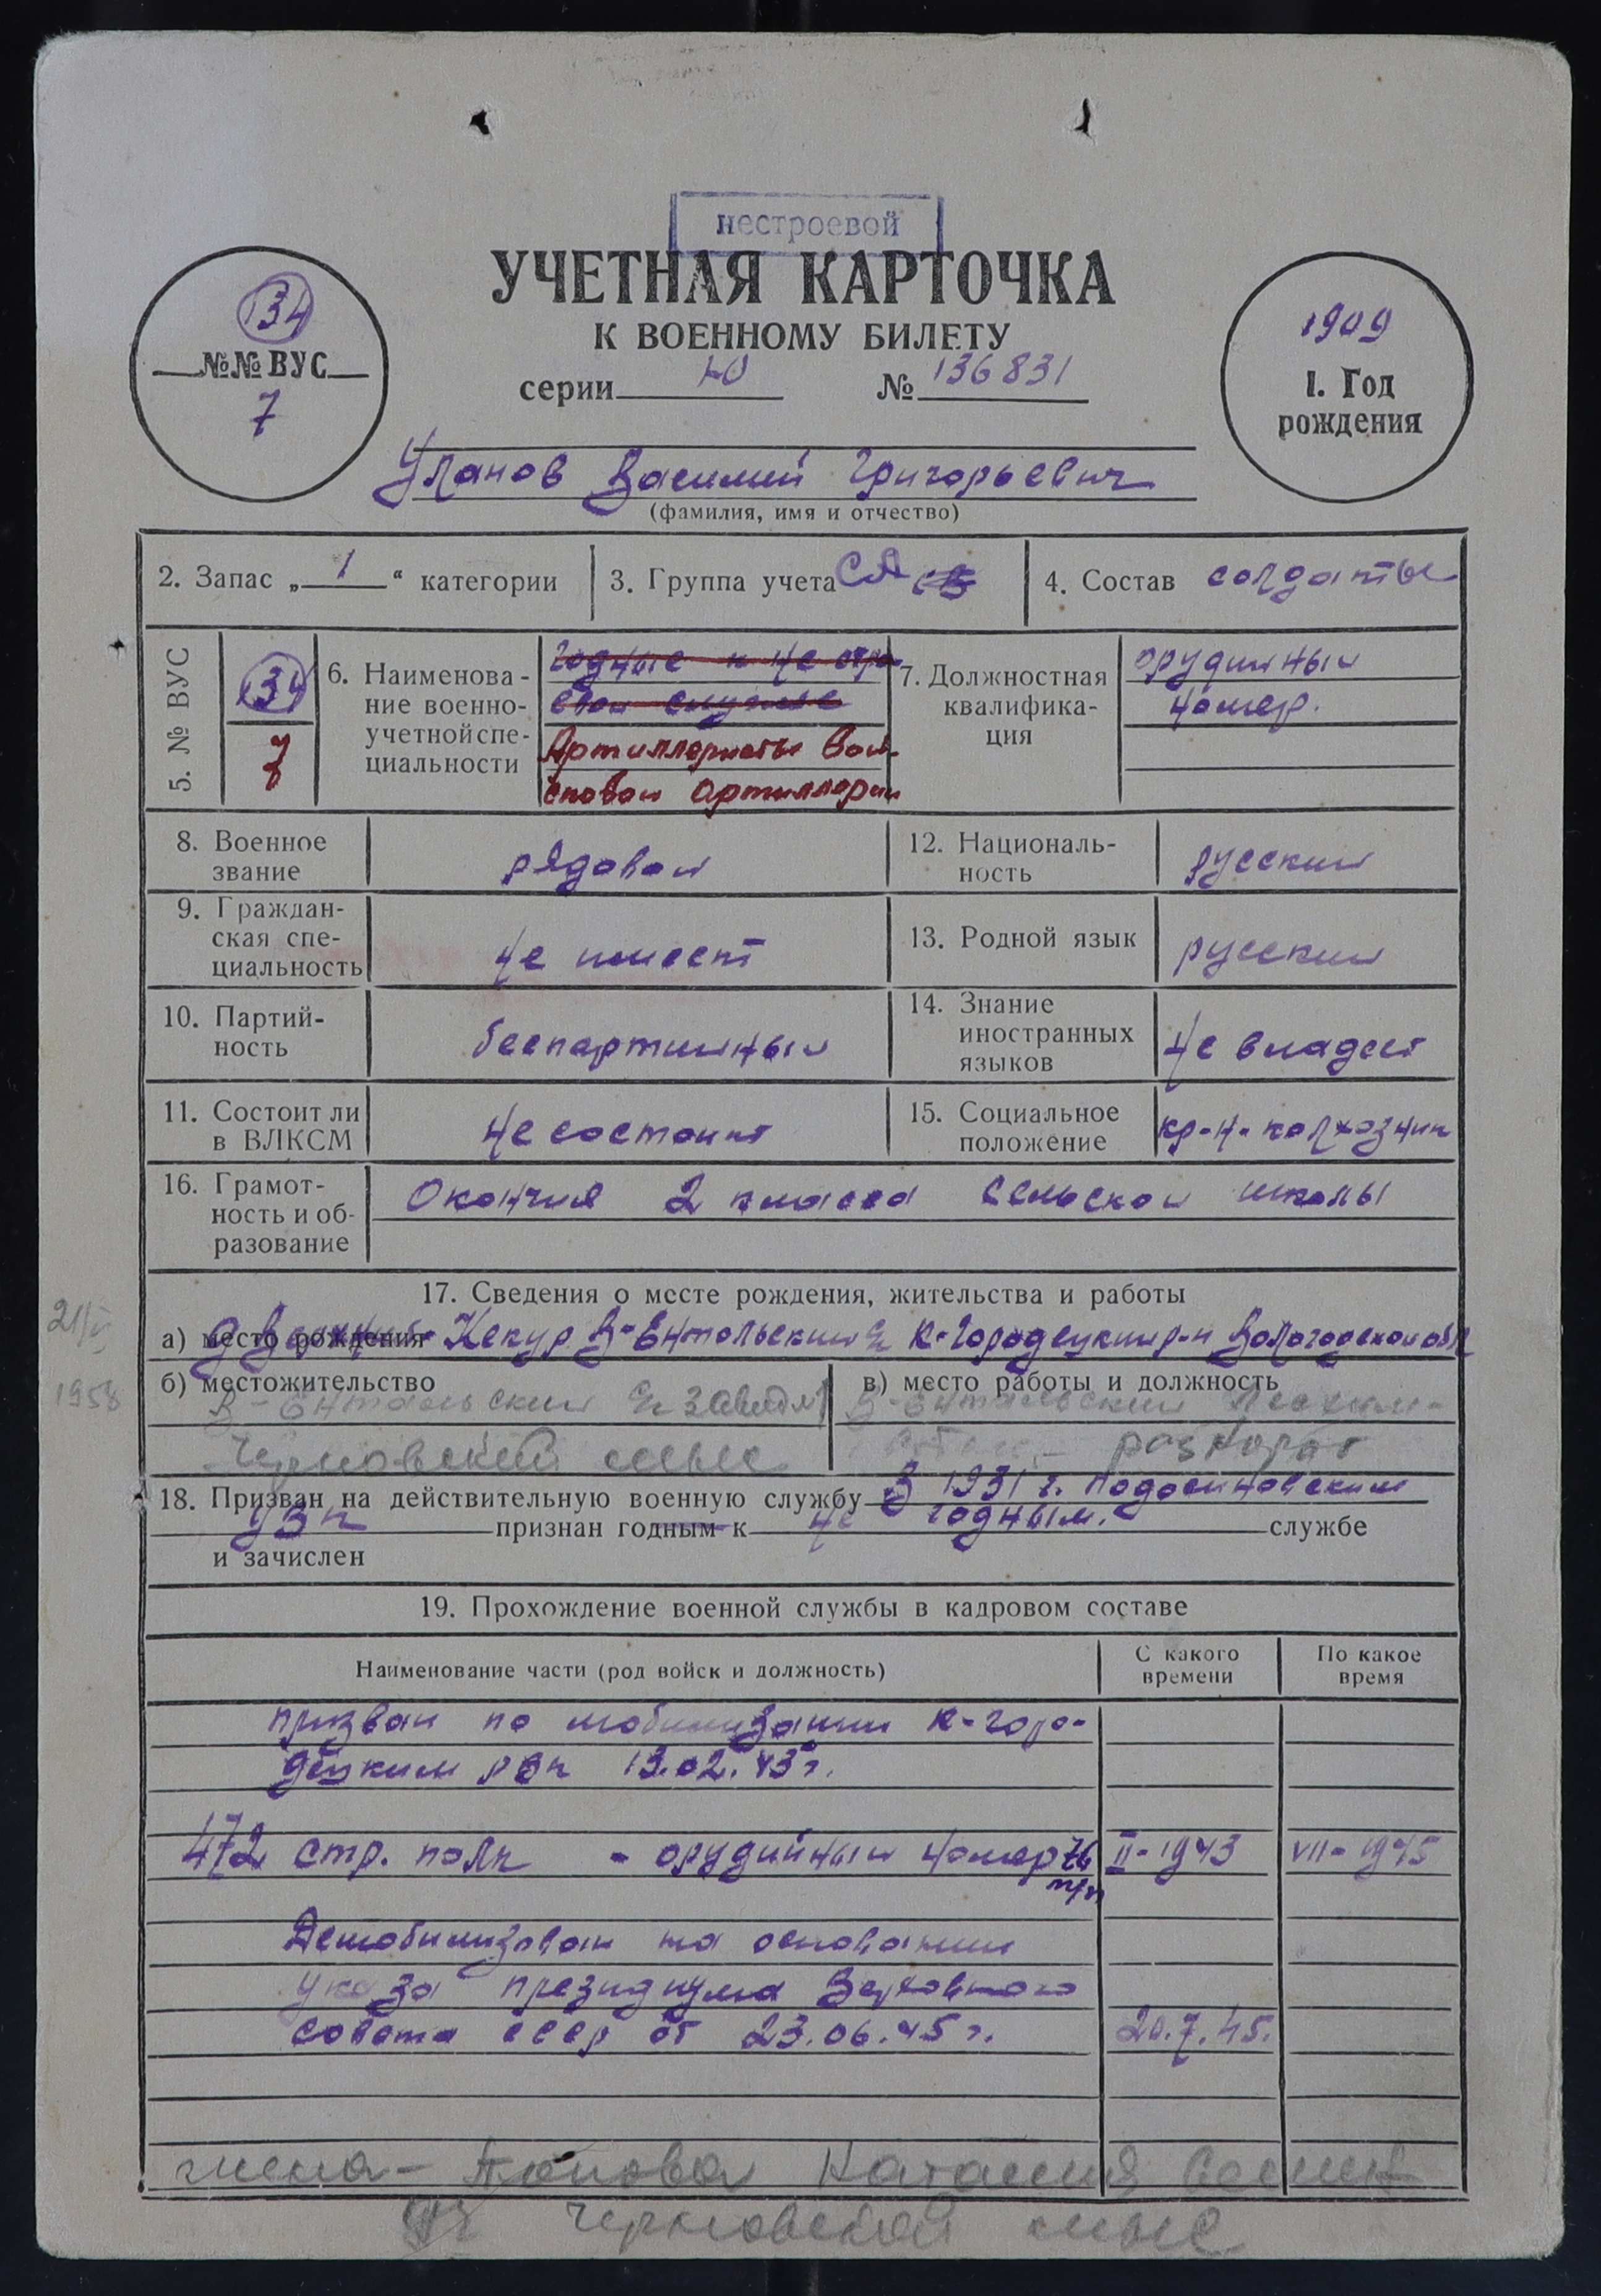 нестроевой
УЧЕТНАЯ КАРТОЧКА
К ВОЕННОМУ БИЛЕТУ
серии Ю № 136831
134
№№ ВУС
7
1909
1. Год
рождения
Уланов Василий Григорьевич
(фамилия, имя и отчество)
2. Запас „ 1 “ категории
3. Группа учета СА
4. Состав солдаты
5. № ВУС
134
7
6. Наименова-
ние военно-
учетной спе-
циальности
годные к не стро-
евой службе
Артиллеристы вой-
сковой артиллерии
7. Должностная
квалифика-
ция
орудийный
номер.
8. Военное
звание
рядовой
12. Националь-
ность
русский
9. Граждан-
ская спе-
циальность
не имеет
13. Родной язык
русский
10. Партий-
ность
беспартийный
14. Знание
иностранных
языков
не владеет
11. Состоит ли
в ВЛКСМ
не состоит
15. Социальное
положение
кр-н- колхозник
16. Грамот-
ность и об-
разование
Окончил 2 класса сельской школы
17. Сведения о месте рождения, жительства и работы
а) место рождения Кекур В-Ентальский К-Городецкий р-н Вологодской обл
1958
б) местожительство
В-Ентальский
Черновский мыс
в) место работы и должность
В-Ентальский
18. Призван на действительную военную службу В 1931 г. Подосиновским
признан годным к не годным. службе
и зачислен
19. Прохождение военной службы в кадровом составе
Наименование части (род войск и должность)
С какого
времени
По какое
время
призван по мобилизации К-горо-
децким рвк 13.02.43 г.
472 стр. полк - орудийный номер 76 II-1943 VII-1945
м/м
Демобилизован на основании
указа президиума Верховного
совета ссср от 23.06.45 г. 20.7.45.
жена - Попова Наталия
Черновской мыс